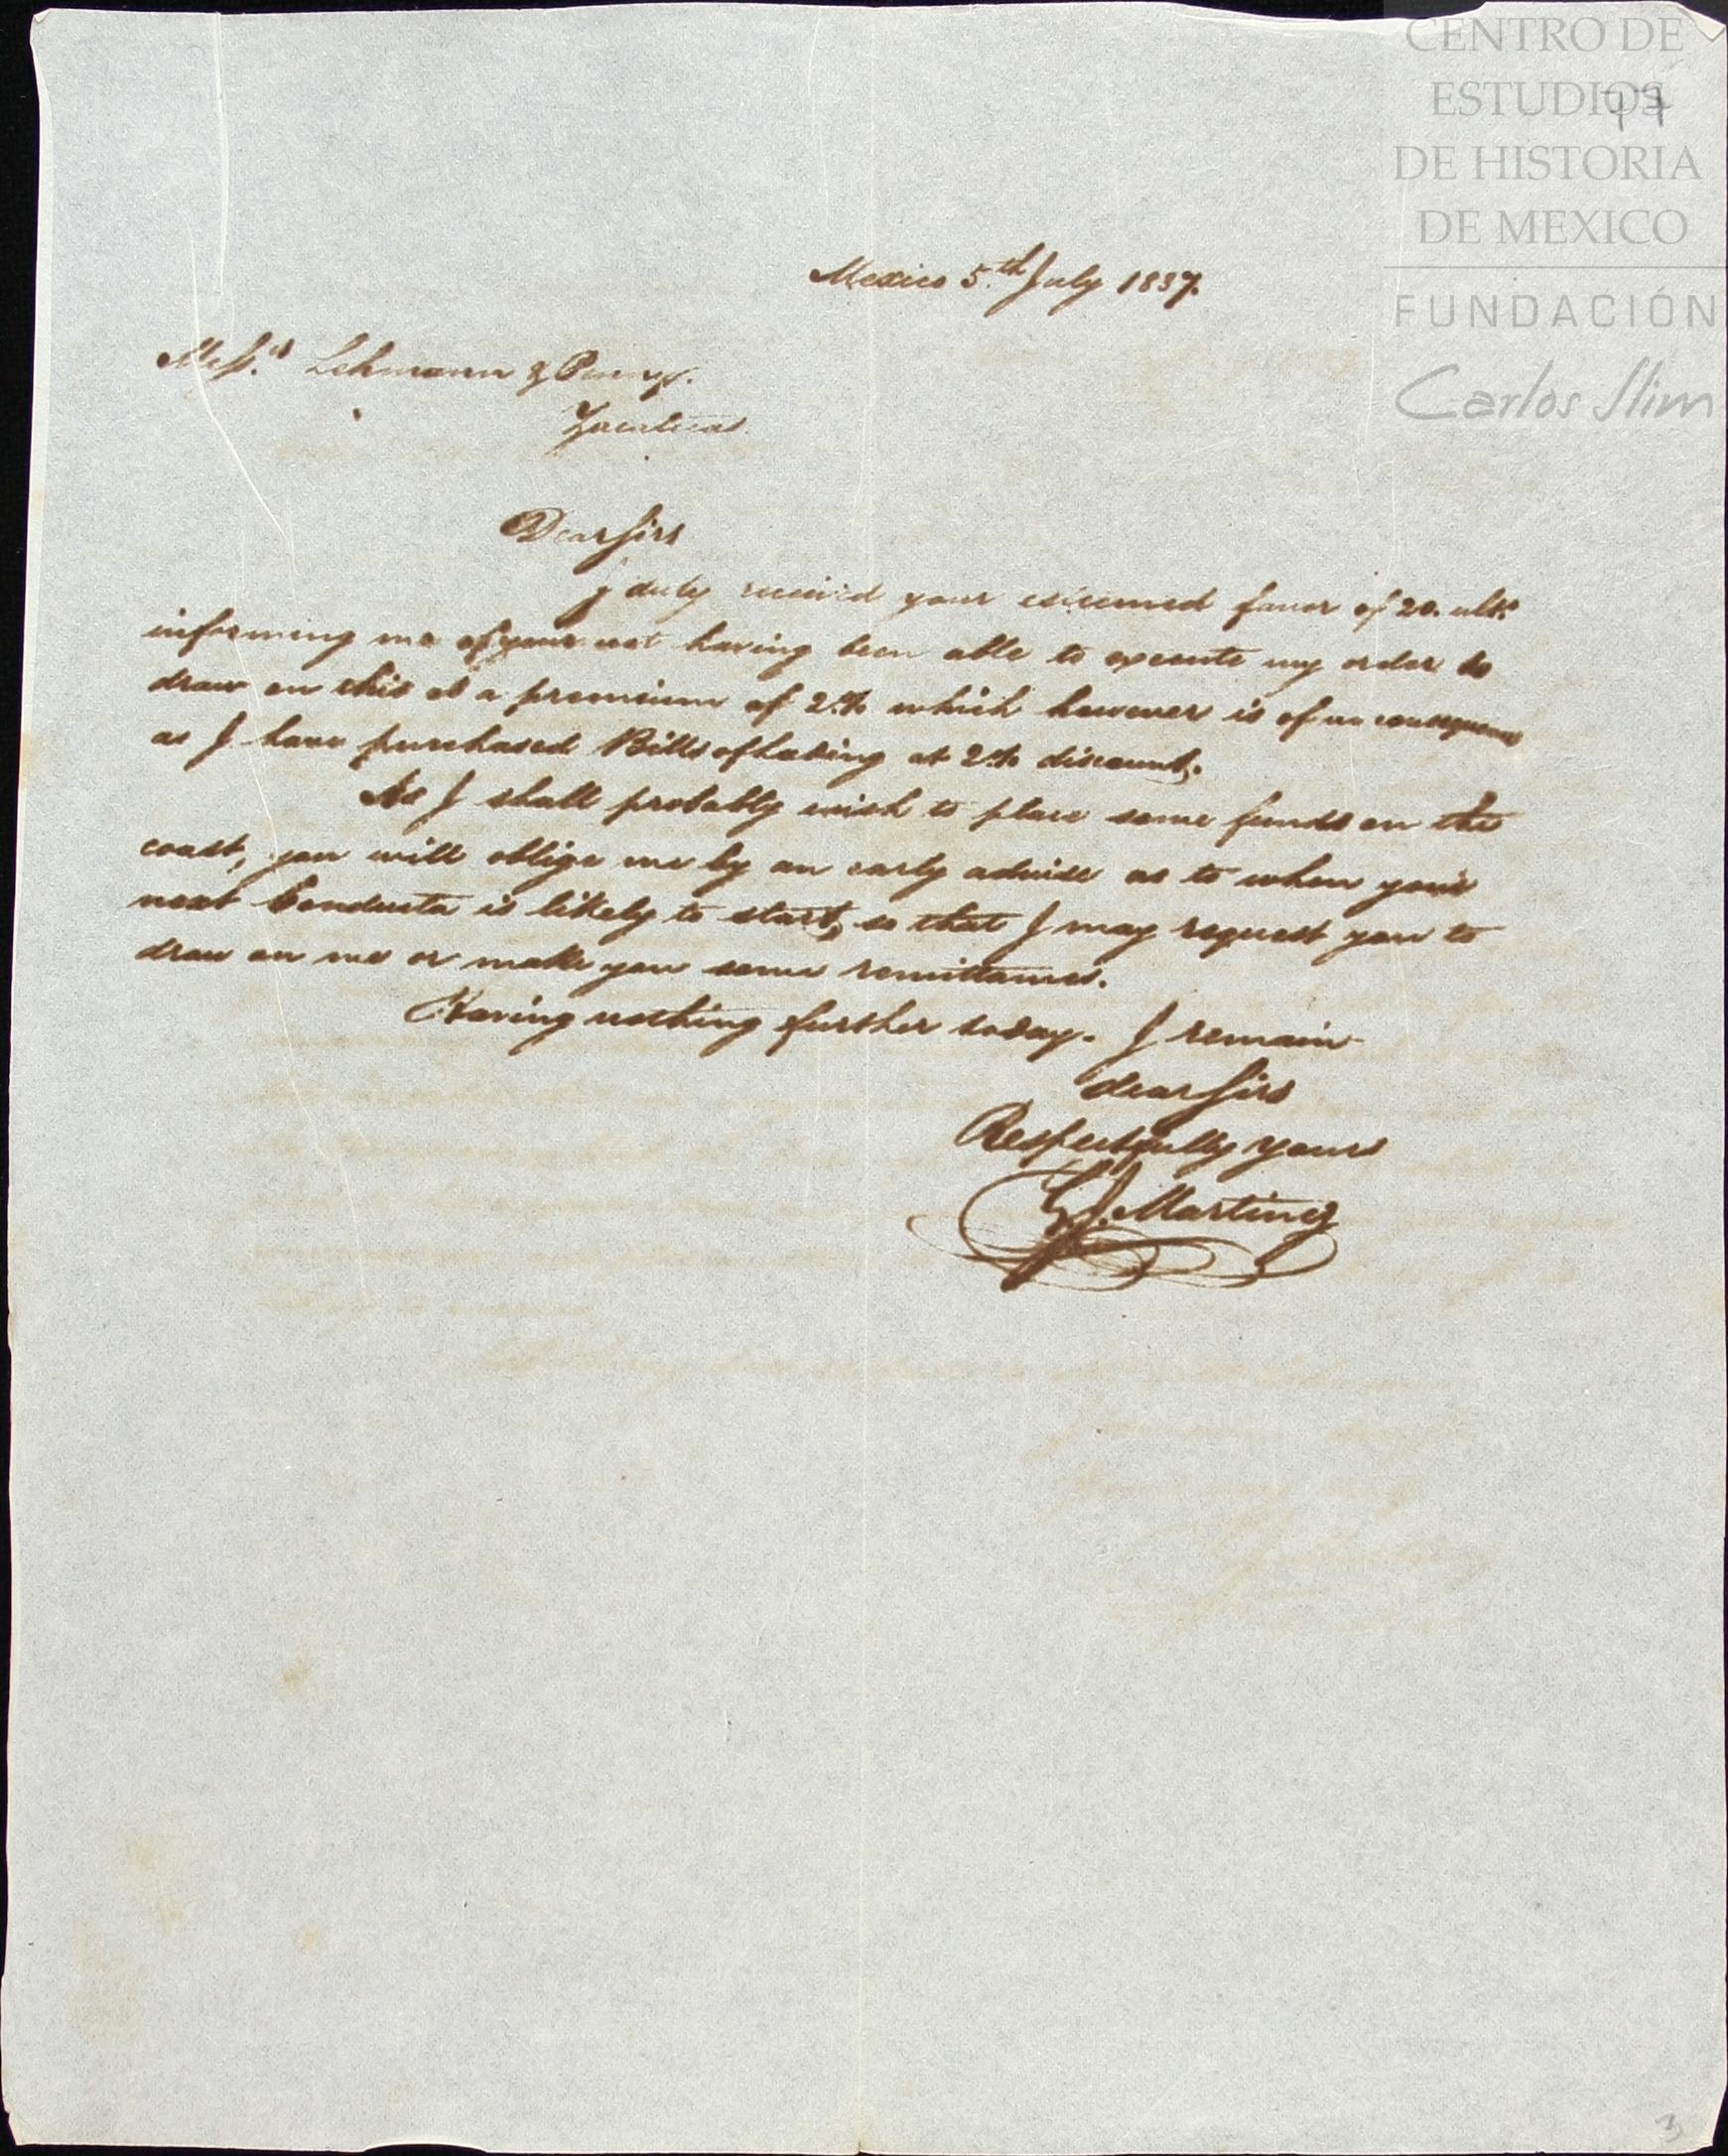 CENTRO DE
ESTUDIOS
DE HISTORIA
DE MEXICO
FUNDACIÓN
Carlos Slim
Mexico 5.th July 1837.
Mess.rs Lehmann & Penny.
Zacatecas.
Dear Sirs
I duly received your esteemed favor of 20. ult.o
informing me of your not having been able to execute my order to
draw on this at a premium of 2.% which however is of no consequence
as I have purchased Bills of Lading at 2% discount.
As I shall probably wish to place some funds on the
coast, you will oblige me by an early advise as to when your
next Conducta is likely to start, so that I may request you to
draw on me or make you some remittances.
Having nothing further today. I remain
dear Sirs
Respectfully yours
Martinez
3